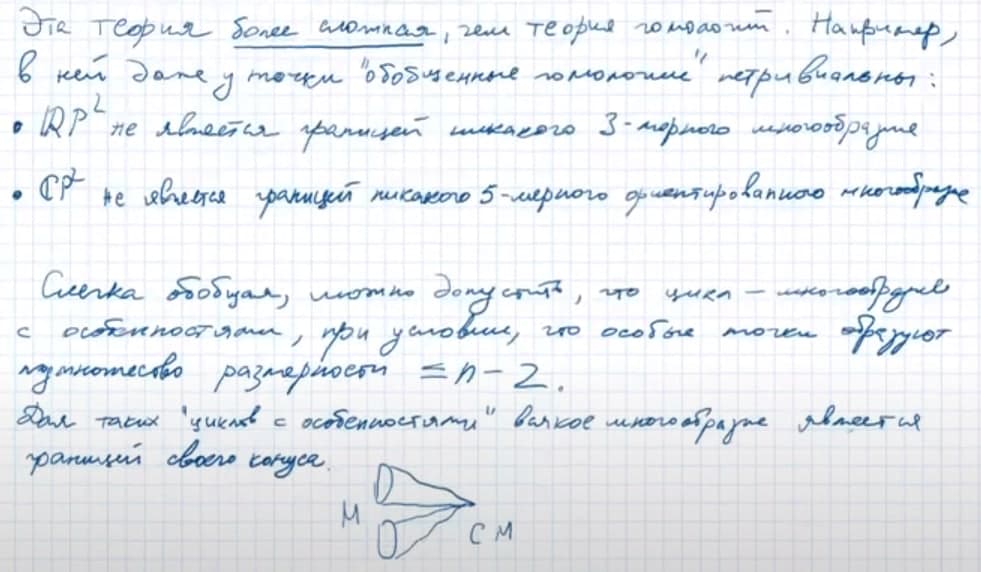 Эта теория более сложная, чем теория гомологий. Например,
в ней даже у точки "обобщенные гомологии" нетривиальны:
• ℝP² не является границей никакого 3-мерного многообразия
• ℂP² не является границей никакого 5-мерного ориентированного многообразия
Слегка обобщая, можно допустить, что цикл – многообразие
с особенностями, при условии, что особые точки образуют
подмножество размерности ≤ n – 2.
Для таких "циклов с особенностями" всякое многообразие является
границей своего конуса.
M CM